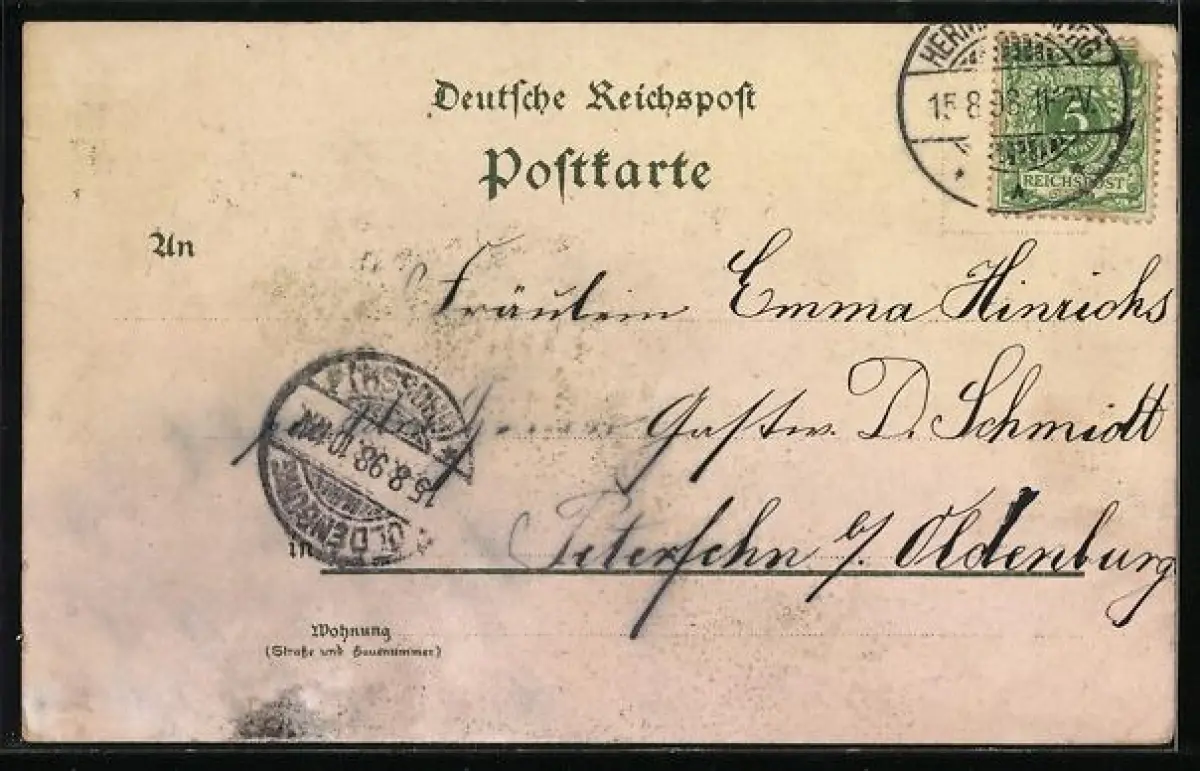 Deutsche Reichspost
Postkarte
15.8.98.11-12V.
5
REICHSPOST
An
Fräulein Emma Hinrichs
Gastw. D. Schmidt
15.8.98.10-11N.
OLDENBURG
in
Petersfehn b/ Oldenburg
Wohnung
(Straße und Hausnummer)